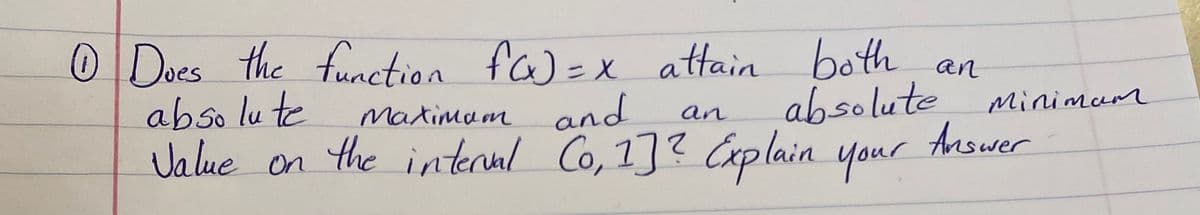 ① Does the function f(x) = x attain both an
absolute maximum and an absolute minimum
Value on the interval (0, 1]? Explain your Answer